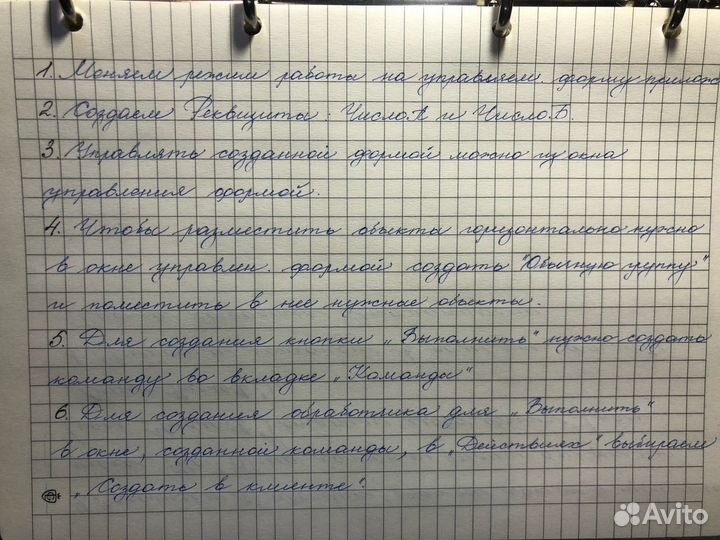 1. Меняем режим работы на управляем. форму прилож
2. Создаем Реквизиты: ЧислоА и ЧислоБ.
3. Управлять созданной формой можно из окна
управления формой.
4. Чтобы разместить объекты горизонтально нужно
в окне управлен. формой создать "Обычную группу"
и поместить в нее нужные объекты.
5. Для создания кнопки „Выполнить“ нужно создать
команду во вкладке „Команды“
6. Для создания обработчика для „Выполнить“
в окне, созданной команды, в „Действиях“ выбираем
„Создать в клиенте“.
Avito